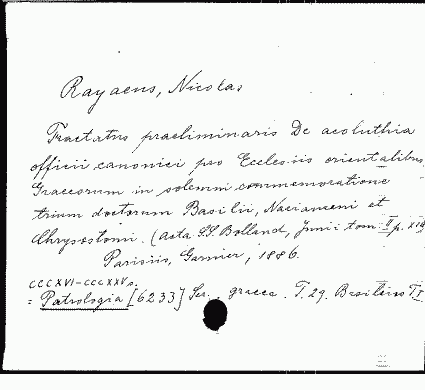 Rayaeus, Nicolas
Tractatus praeliminaris De acoluthia
officii canonici pro Ecclesiis orientalibus,
Graecorum in solemni commemoratione
trium doctorum Basilii, Nacianceni et
Chrysostomi. (Acta SS Bolland, Junii tom II p. XIII
Parisiis, Garnier, 1886.
CCCXVI-CCCXXV.
= Patrologia [6233] Ser. graeca. T. 29. Basileius T I